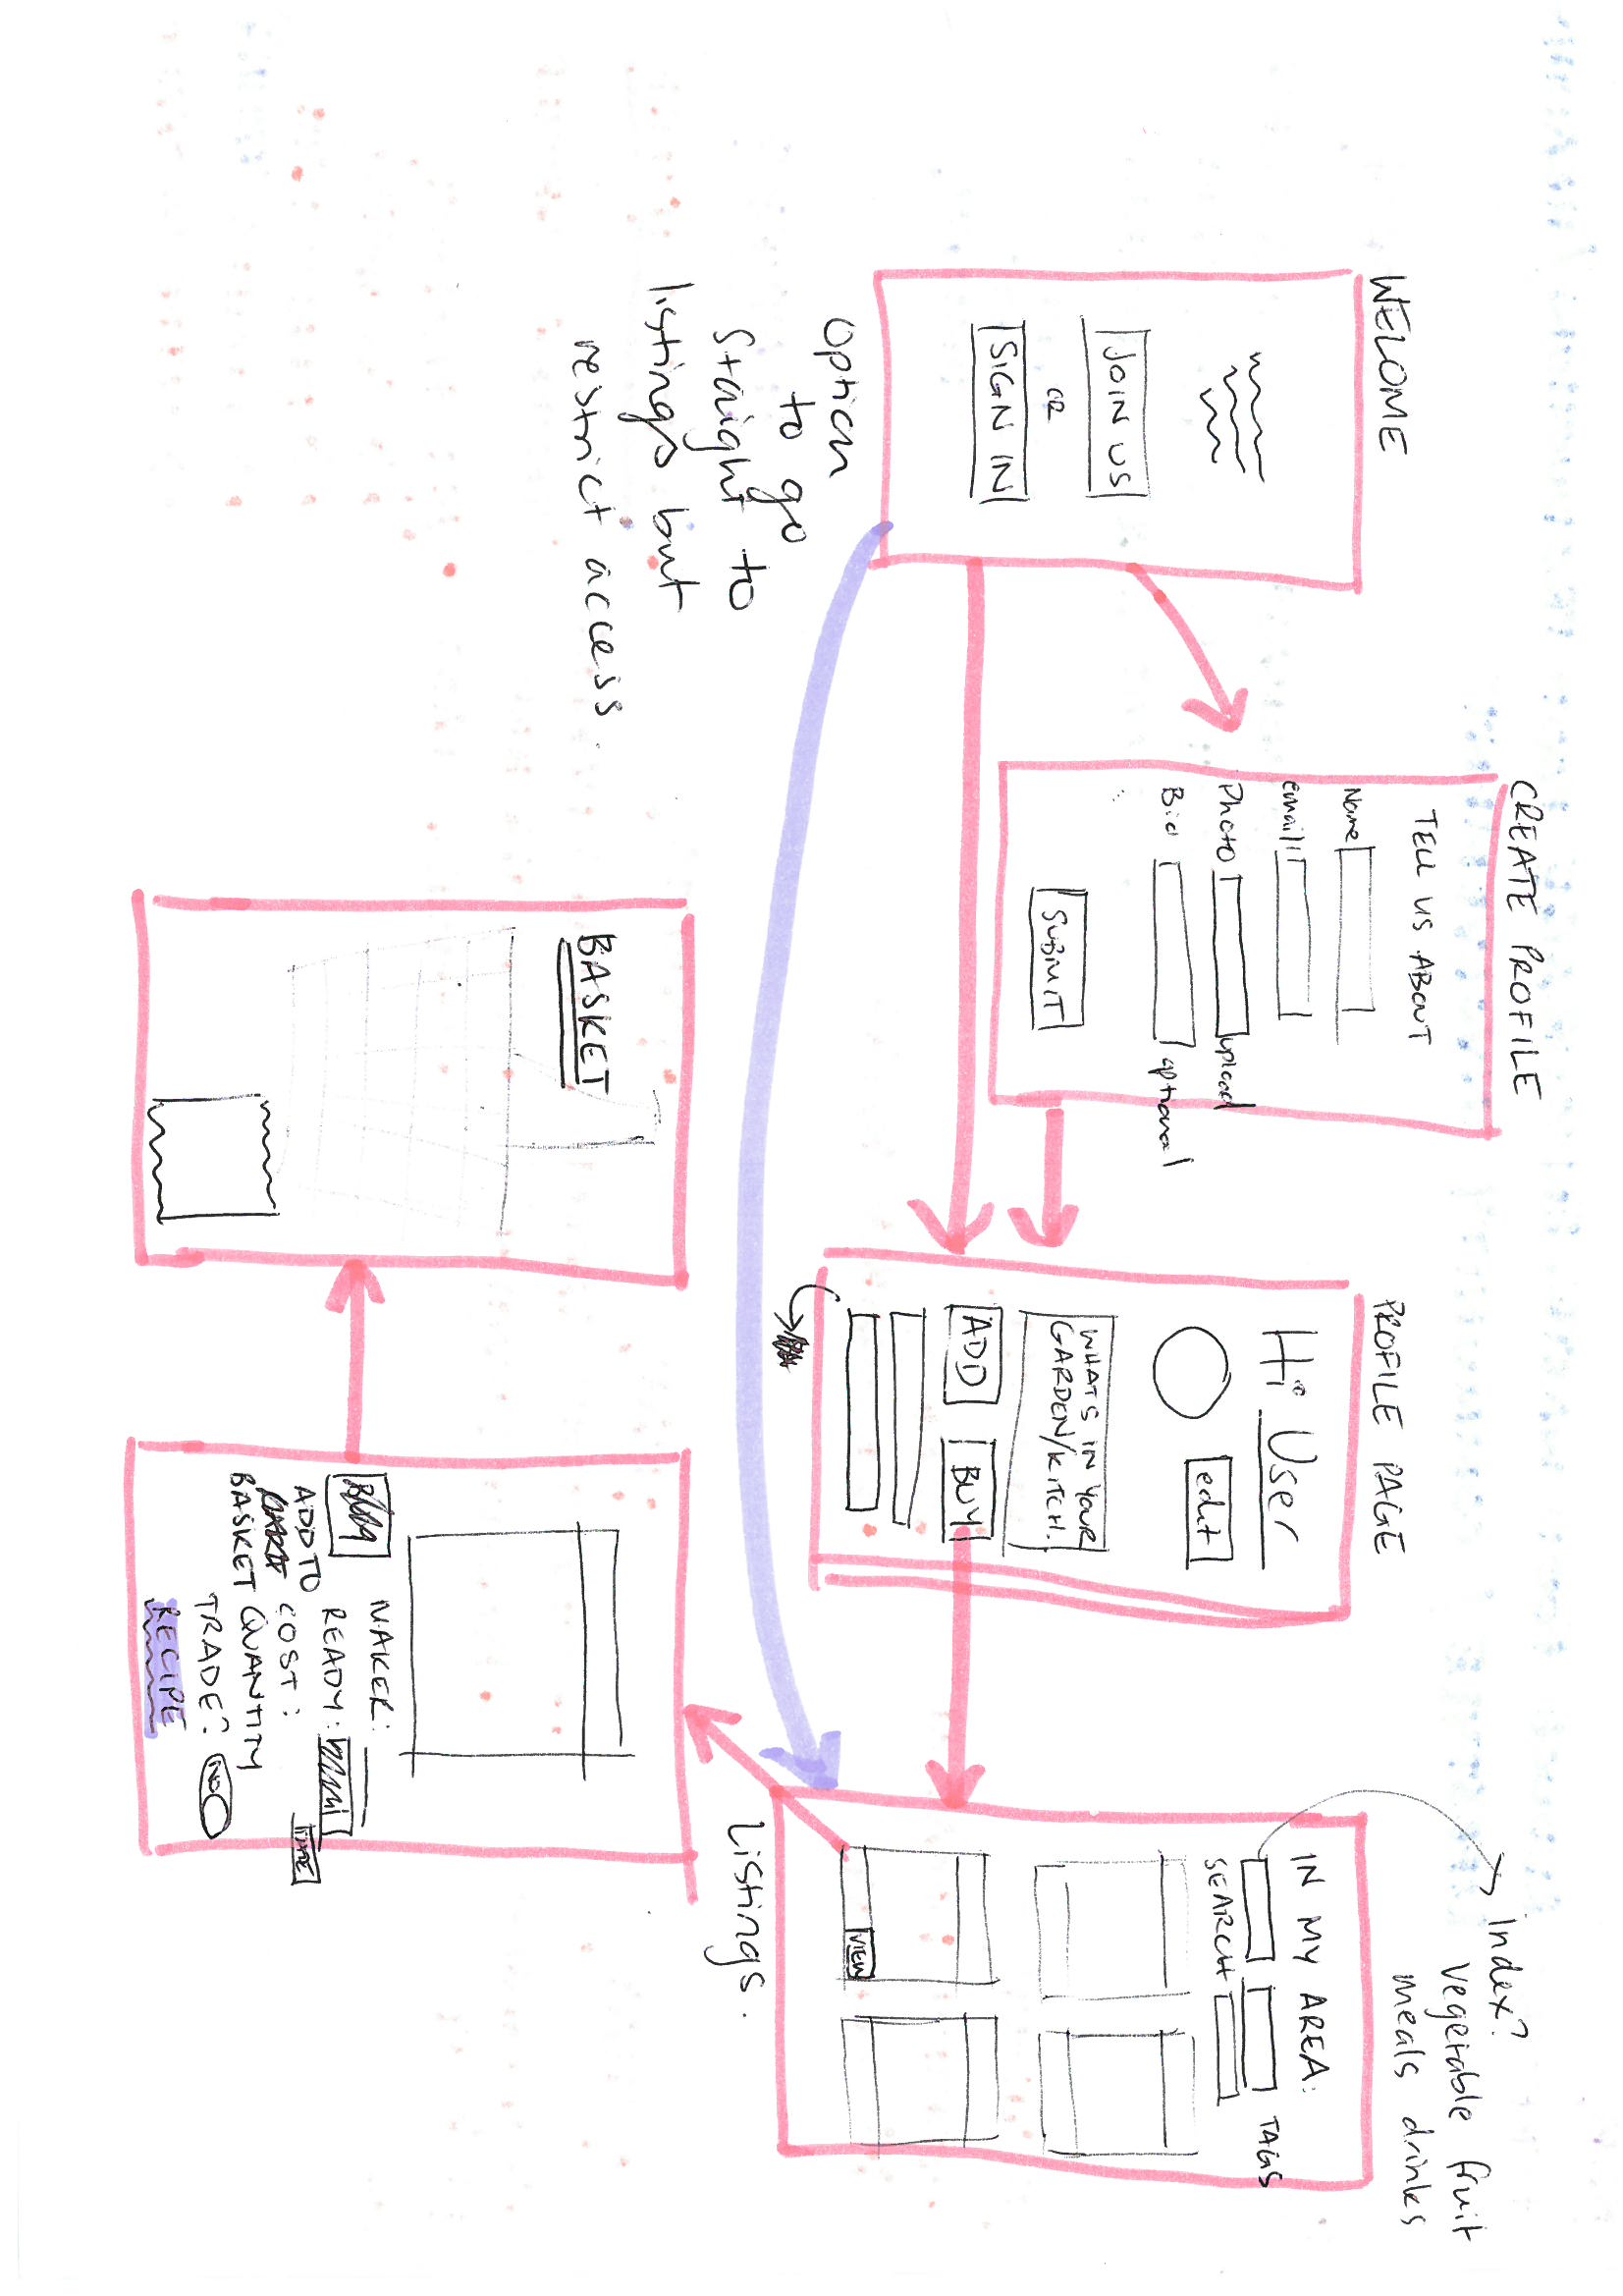 WELOME
JOIN US
OR
SIGN IN
Option
to go
Straight to
listings but
restrict access.
CREATE PROFILE
TELL US ABOUT
Name
email
Photo upload
Bio optional
SUBMIT
PROFILE PAGE
Hi User
edit
WHATS IN YOUR
GARDEN/KITCH.
ADD BUY
Index?
vegetable fruit
meals drinks
IN MY AREA:
TAGS
SEARCH
VIEW
Listings.
MAKER:
READY:
TIME
ADD TO
BASKET
COST:
QUANTITY
TRADE? NO
RECIPE
BASKET